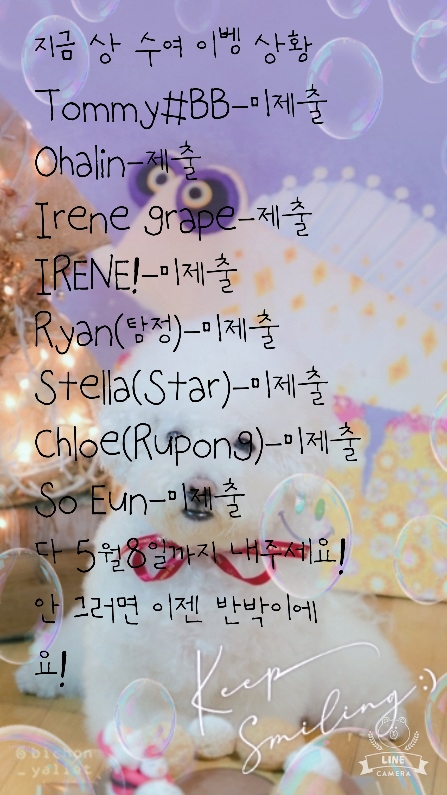 지금 상 수여 이벵 상황
Tommy#BB-미제출
Ohalin-제출
Irene grape-제출
IRENE!-미제출
Ryan(탐정)-미제출
Stella(Star)-미제출
Chloe(Rupong)-미제출
So Eun-미제출
다 5월8일까지 내주세요!
안 그러면 이젠 반박이에
요!
Keep
Smiling :)
@bichon
_yallet
LINE
CAMERA